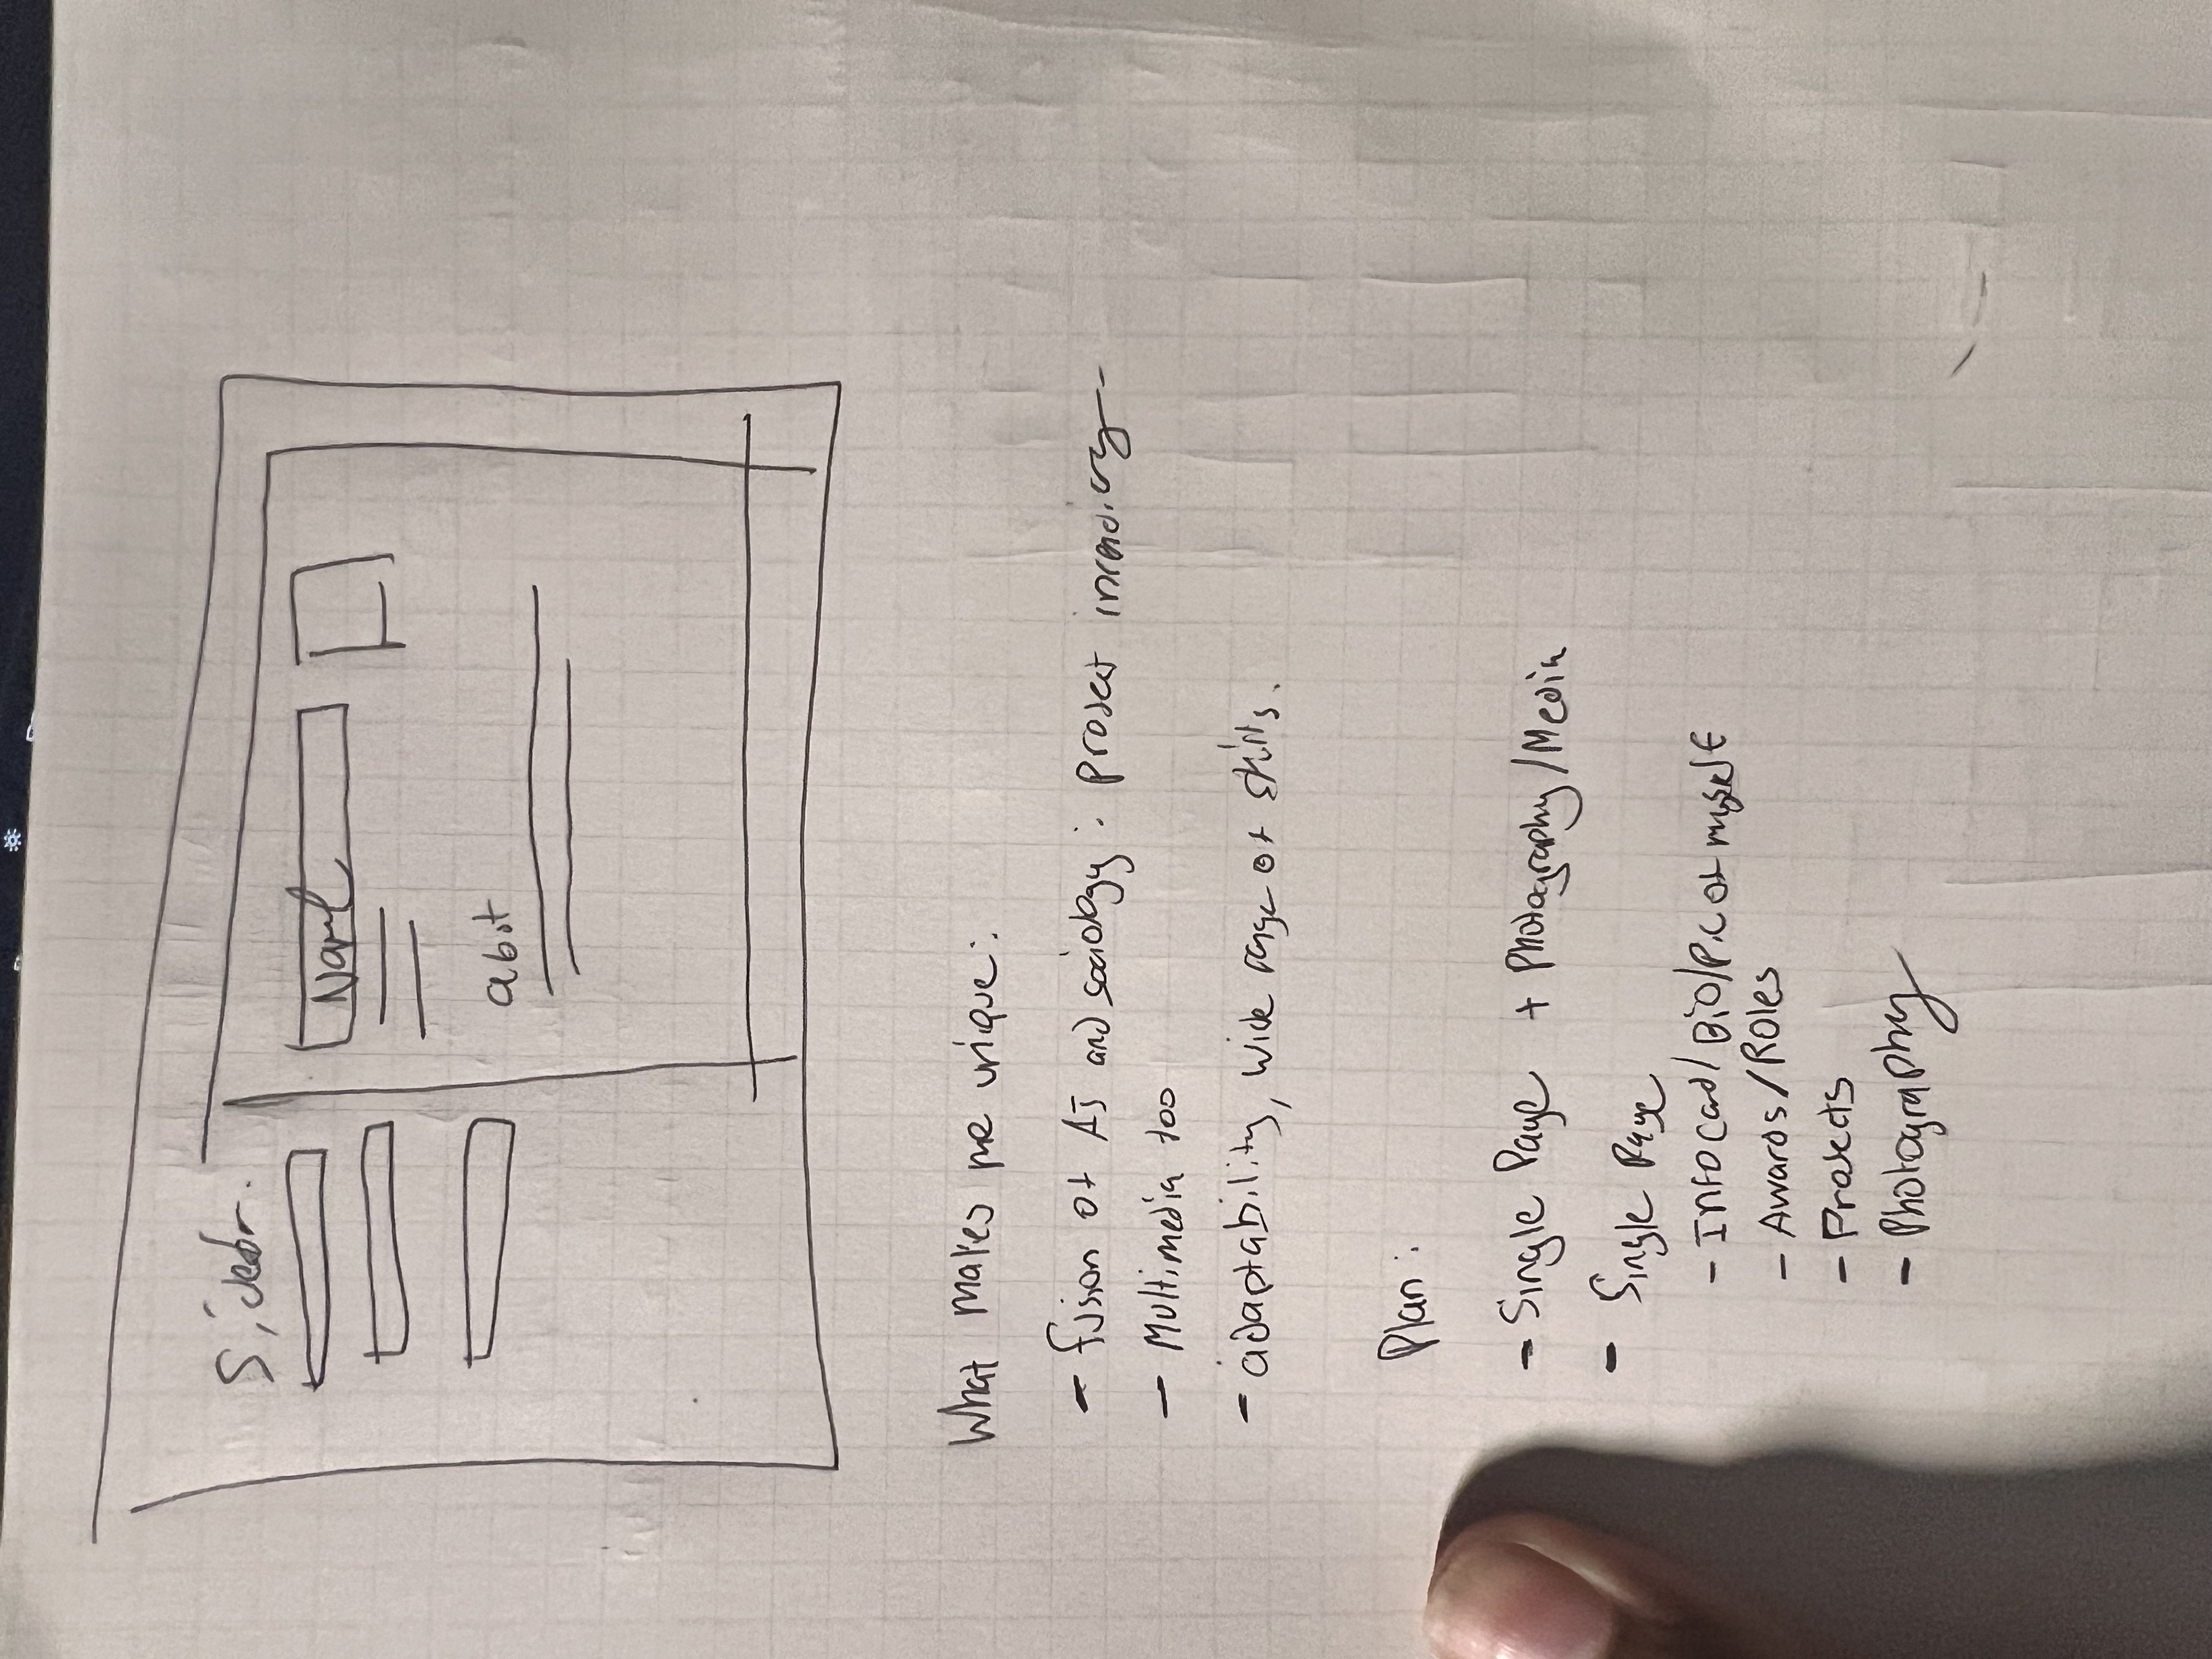 Sidebr.
Name
abot
What makes me unique:
- fusion of AI and sociology : project incendiary
- Multimedia too
- adaptability, wide range of skills.
Plan :
- Single Page + Photography/Media
- Single Page
- Info Card/BiO/Pic of myself
- Awards/Roles
- Projects
- Photography